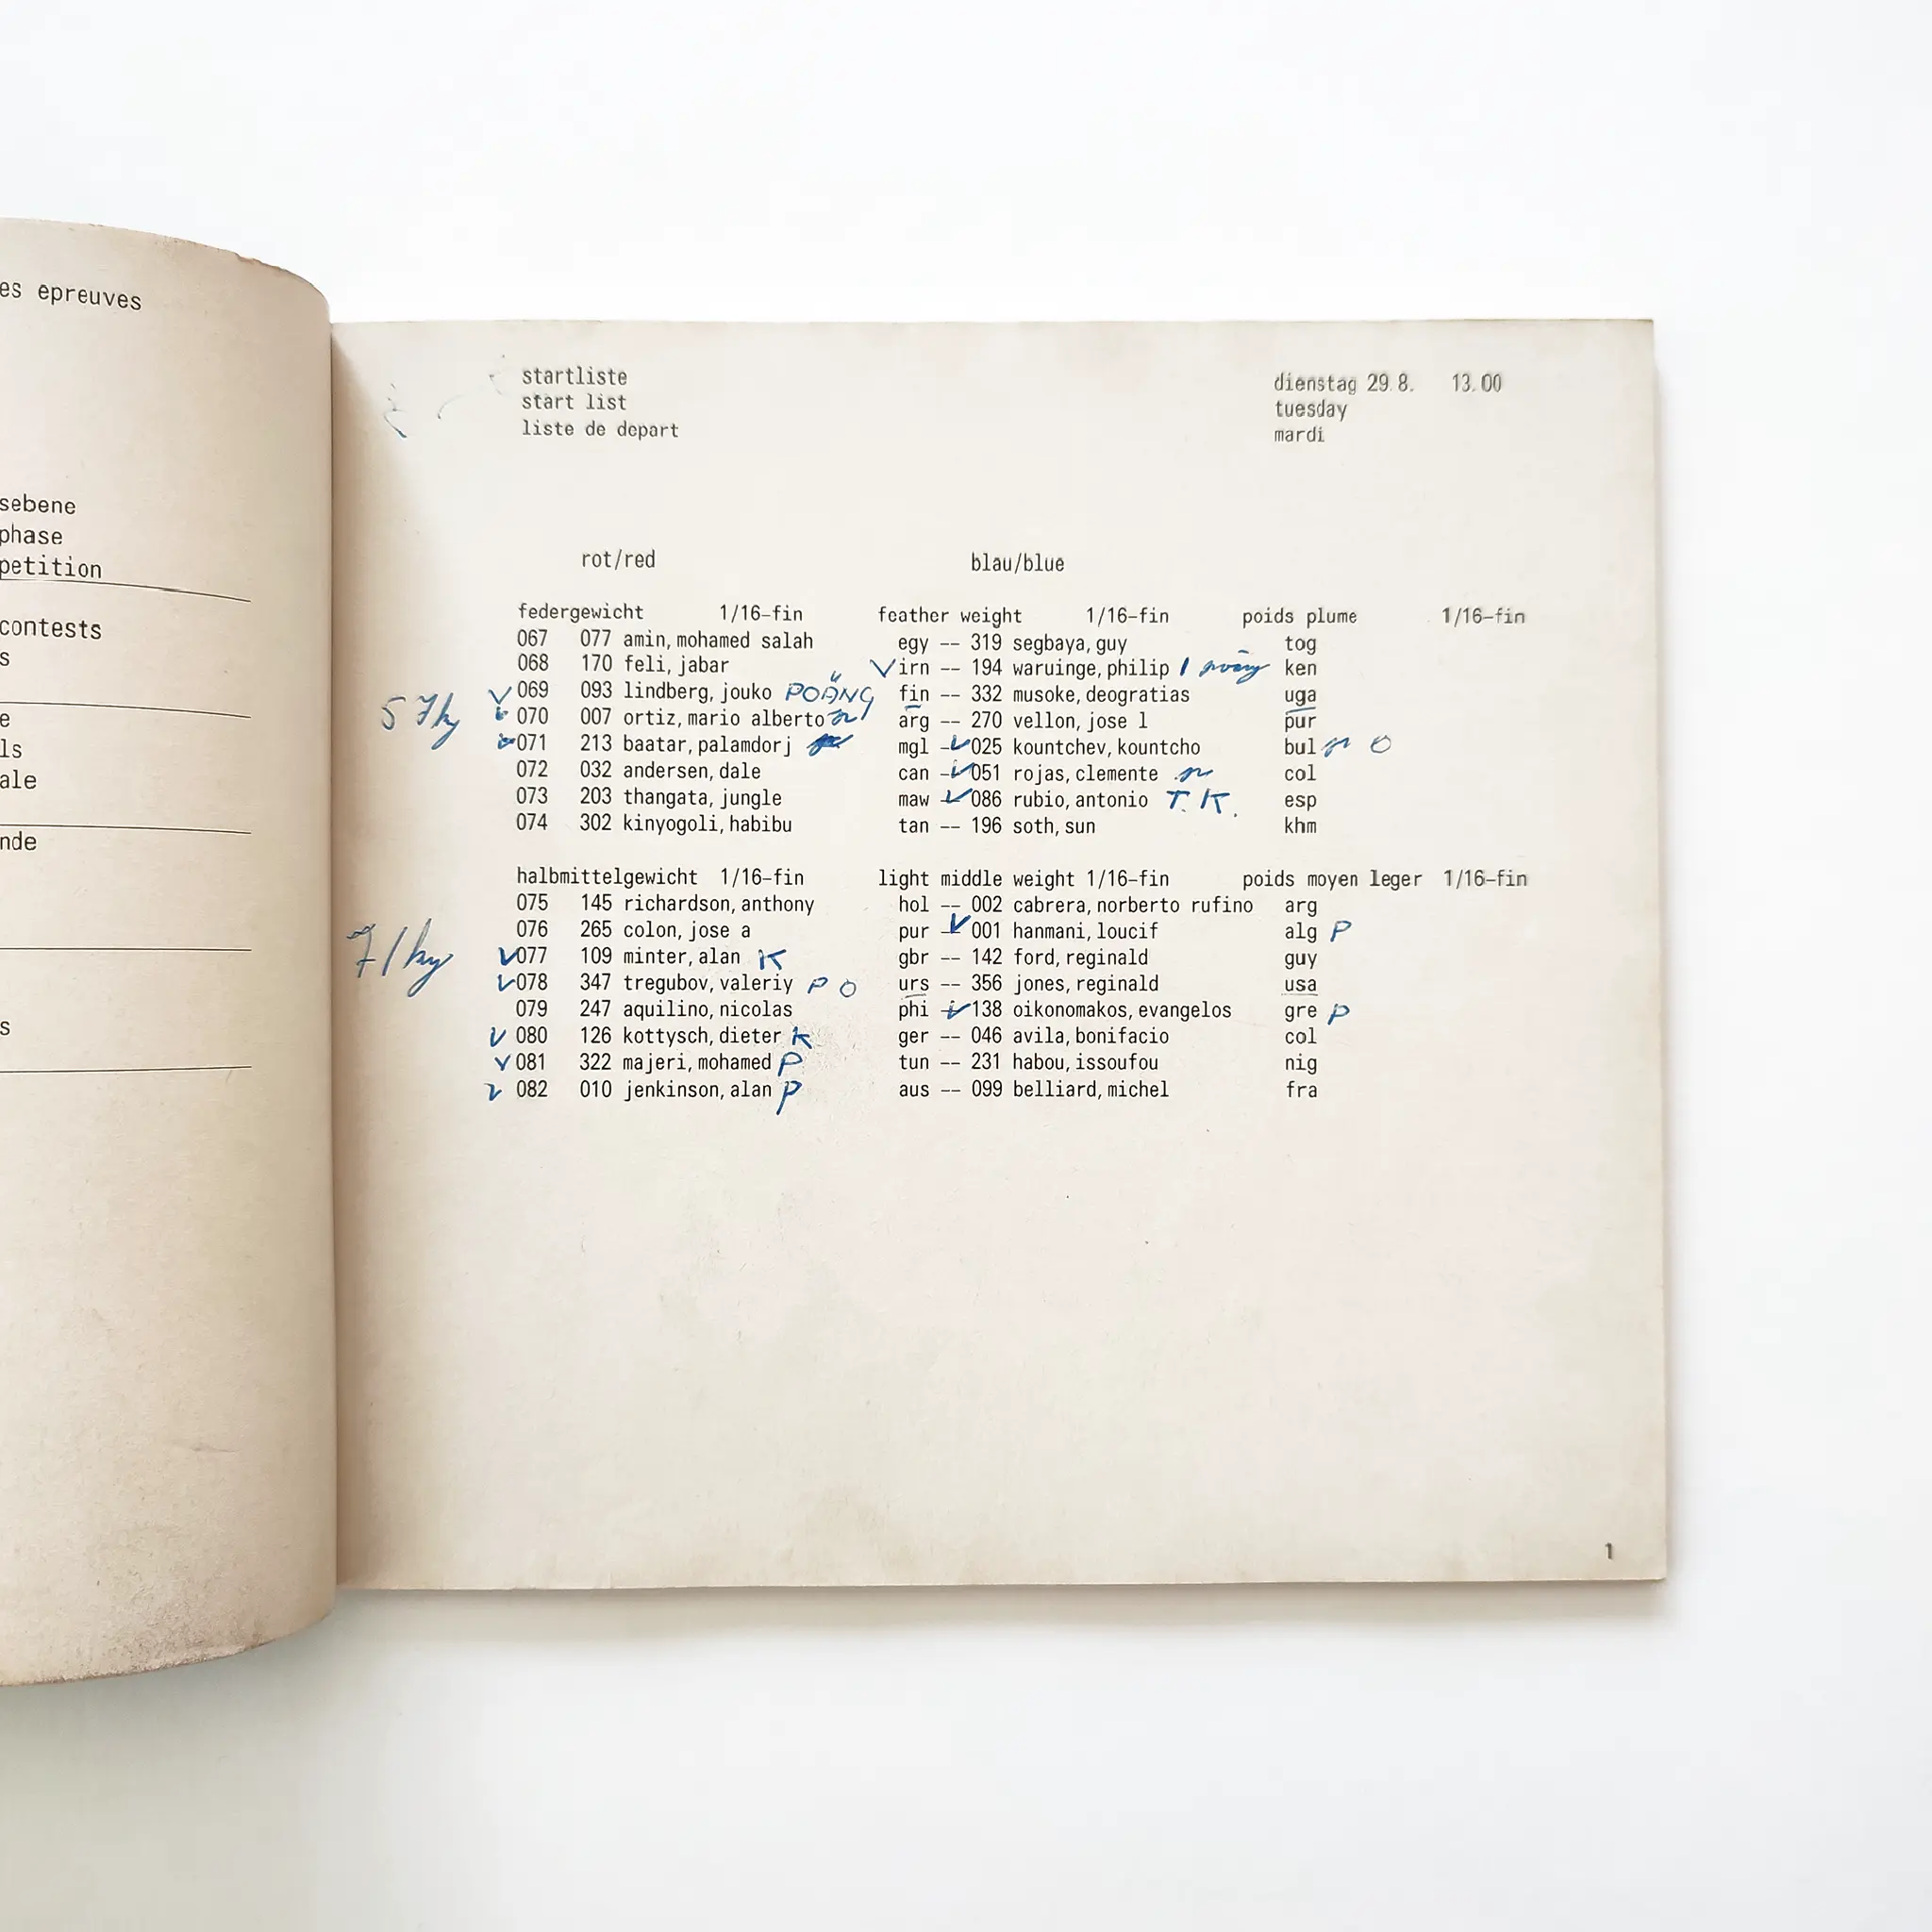 es epreuves
sebene
phase
petition
contests
s
e
ls
ale
nde
s
startliste
start list
liste de depart
dienstag 29.8. 13.00
tuesday
mardi
rot/red blau/blue
federgewicht 1/16-fin feather weight 1/16-fin poids plume 1/16-fin
067 077 amin, mohamed salah egy -- 319 segbaya, guy tog
068 170 feli, jabar irn -- 194 waruinge, philip ken
069 093 lindberg, jouko POÄNG fin -- 332 musoke, deogratias uga
57kg
070 007 ortiz, mario alberto arg -- 270 vellon, jose l pur
071 213 baatar, palamdorj mgl -- 025 kountchev, kountcho bul O
072 032 andersen, dale can -- 051 rojas, clemente col
073 203 thangata, jungle maw -- 086 rubio, antonio T.K. esp
074 302 kinyogoli, habibu tan -- 196 soth, sun khm
halbmittelgewicht 1/16-fin light middle weight 1/16-fin poids moyen leger 1/16-fin
075 145 richardson, anthony hol -- 002 cabrera, norberto rufino arg
076 265 colon, jose a pur -- 001 hanmani, loucif alg P
71kg
077 109 minter, alan K gbr -- 142 ford, reginald guy
078 347 tregubov, valeriy P O urs -- 356 jones, reginald usa
079 247 aquilino, nicolas phi -- 138 oikonomakos, evangelos gre P
080 126 kottysch, dieter K ger -- 046 avila, bonifacio col
081 322 majeri, mohamed P tun -- 231 habou, issoufou nig
082 010 jenkinson, alan P aus -- 099 belliard, michel fra
1